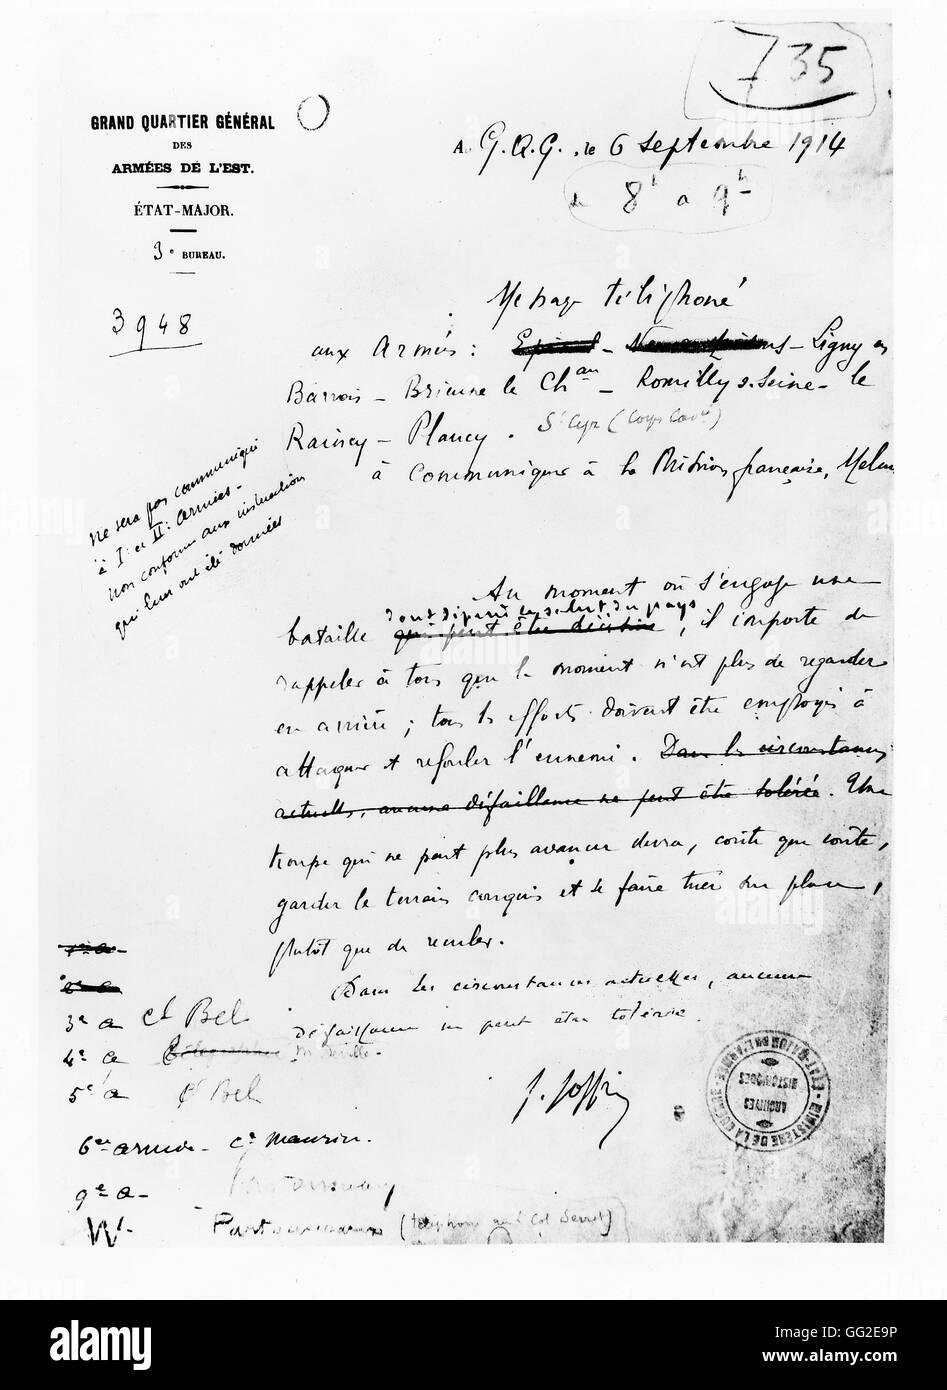 735
GRAND QUARTIER GÉNÉRAL
DES
ARMÉES DE L'EST.
ÉTAT-MAJOR.
3e BUREAU.
3948
A G.Q.G., le 6 Septembre 1914
de 8h à 9h
Message téléphoné
aux Armées : Epinal - - Ligny en
Barrois - Brienne le Chau - Romilly s. Seine - le
Raincy - Plancy. St Cyr (Corps Cavie)
à communiquer à la Mission française, Melun
ne sera pas communiqué
à I et II: armées -
non conforme aux instructions
qui leur ont été données
Au moment où s'engage une
dont dépend le salut du pays
bataille qui peut être décisive, il importe de
rappeler à tous que le moment n'est plus de regarder
en arrière ; tous les efforts doivent être employés à
attaquer et refouler l'ennemi. Dans les circonstances
actuelles, aucune défaillance ne peut être tolérée. Une
troupe qui ne peut plus avancer devra, coûte que coûte,
garder le terrain conquis et se faire tuer sur place,
plutôt que de reculer.
Dans les circonstances actuelles, aucune
défaillance ne peut être tolérée.
J. Joffre
1re a -
2e a
3e a Ct Bel
4e a
5e a Ct Bel
6me armée - Ct Maurin.
9e a -
W. (téléphoné Col Serret)
MINISTÈRE DE LA GUERRE
ÉTAT-MAJOR DE L'ARMÉE
ARCHIVES
HISTORIQUES
alamy
a
alamy stock photo
GG2E9P
www.alamy.com